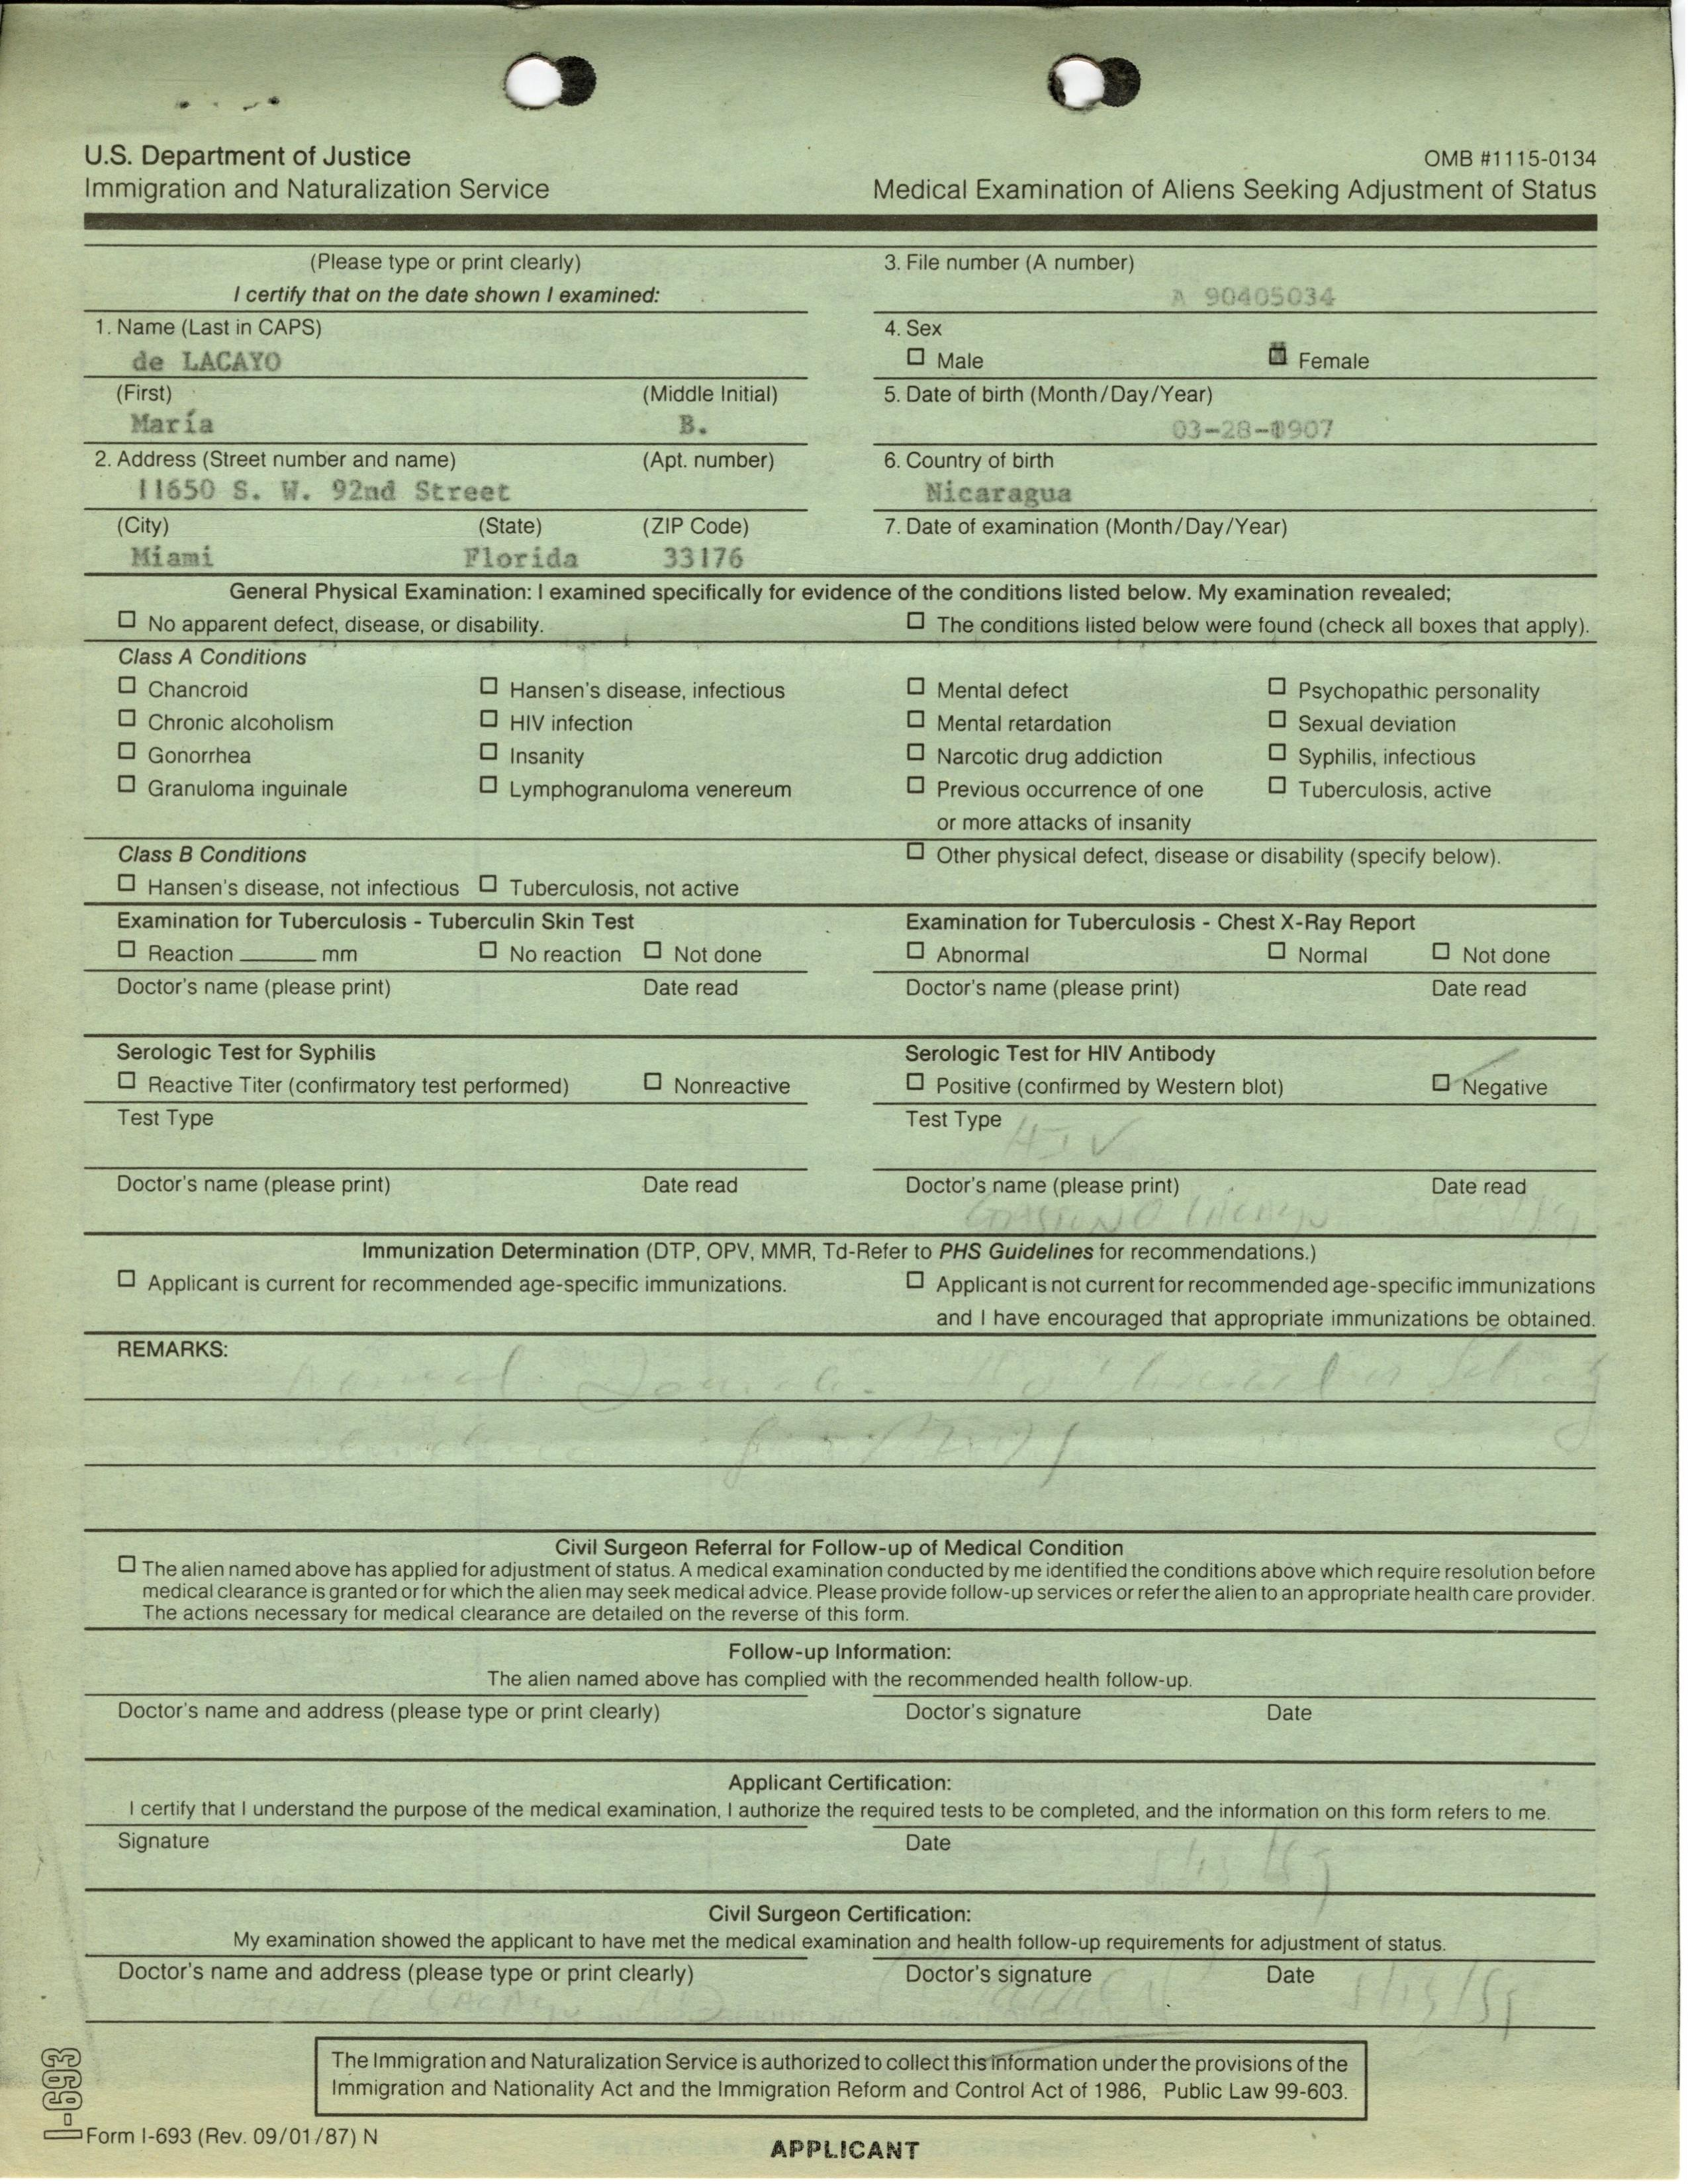 U.S. Department of Justice
Immigration and Naturalization Service
OMB #1115-0134
Medical Examination of Aliens Seeking Adjustment of Status
(Please type or print clearly)
I certify that on the date shown I examined:
3. File number (A number)
A 90405034
1. Name (Last in CAPS)
de LACAYO
4. Sex
Male Female
(First) (Middle Initial)
María B.
5. Date of birth (Month/Day/Year)
03-28-1907
2. Address (Street number and name) (Apt. number)
11650 S. W. 92nd Street
6. Country of birth
Nicaragua
(City) (State) (ZIP Code)
Miami Florida 33176
7. Date of examination (Month/Day/Year)
General Physical Examination: I examined specifically for evidence of the conditions listed below. My examination revealed;
No apparent defect, disease, or disability. The conditions listed below were found (check all boxes that apply).
Class A Conditions
Chancroid Hansen's disease, infectious Mental defect Psychopathic personality
Chronic alcoholism HIV infection Mental retardation Sexual deviation
Gonorrhea Insanity Narcotic drug addiction Syphilis, infectious
Granuloma inguinale Lymphogranuloma venereum Previous occurrence of one Tuberculosis, active
or more attacks of insanity
Class B Conditions Other physical defect, disease or disability (specify below).
Hansen's disease, not infectious Tuberculosis, not active
Examination for Tuberculosis - Tuberculin Skin Test
Reaction ______ mm No reaction Not done
Doctor's name (please print) Date read
Examination for Tuberculosis - Chest X-Ray Report
Abnormal Normal Not done
Doctor's name (please print) Date read
Serologic Test for Syphilis
Reactive Titer (confirmatory test performed) Nonreactive
Test Type
Doctor's name (please print) Date read
Serologic Test for HIV Antibody
Positive (confirmed by Western blot) Negative
Test Type
HIV
Doctor's name (please print) Date read
LACAYO
Immunization Determination (DTP, OPV, MMR, Td-Refer to PHS Guidelines for recommendations.)
Applicant is current for recommended age-specific immunizations. Applicant is not current for recommended age-specific immunizations
and I have encouraged that appropriate immunizations be obtained.
REMARKS:
Civil Surgeon Referral for Follow-up of Medical Condition
The alien named above has applied for adjustment of status. A medical examination conducted by me identified the conditions above which require resolution before
medical clearance is granted or for which the alien may seek medical advice. Please provide follow-up services or refer the alien to an appropriate health care provider.
The actions necessary for medical clearance are detailed on the reverse of this form.
Follow-up Information:
The alien named above has complied with the recommended health follow-up.
Doctor's name and address (please type or print clearly) Doctor's signature Date
Applicant Certification:
I certify that I understand the purpose of the medical examination, I authorize the required tests to be completed, and the information on this form refers to me.
Signature Date
Civil Surgeon Certification:
My examination showed the applicant to have met the medical examination and health follow-up requirements for adjustment of status.
Doctor's name and address (please type or print clearly) Doctor's signature Date
LACAYO
The Immigration and Naturalization Service is authorized to collect this information under the provisions of the
Immigration and Nationality Act and the Immigration Reform and Control Act of 1986, Public Law 99-603.
I-693
Form I-693 (Rev. 09/01/87) N
APPLICANT